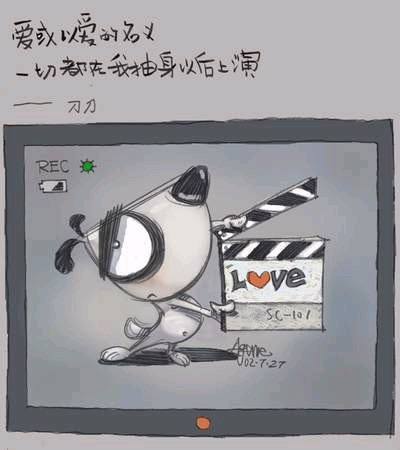 爱或以爱的名义
一切都在我抽身以后上演
—— 刀刀
REC
LOVE
SC-101
02-7-27